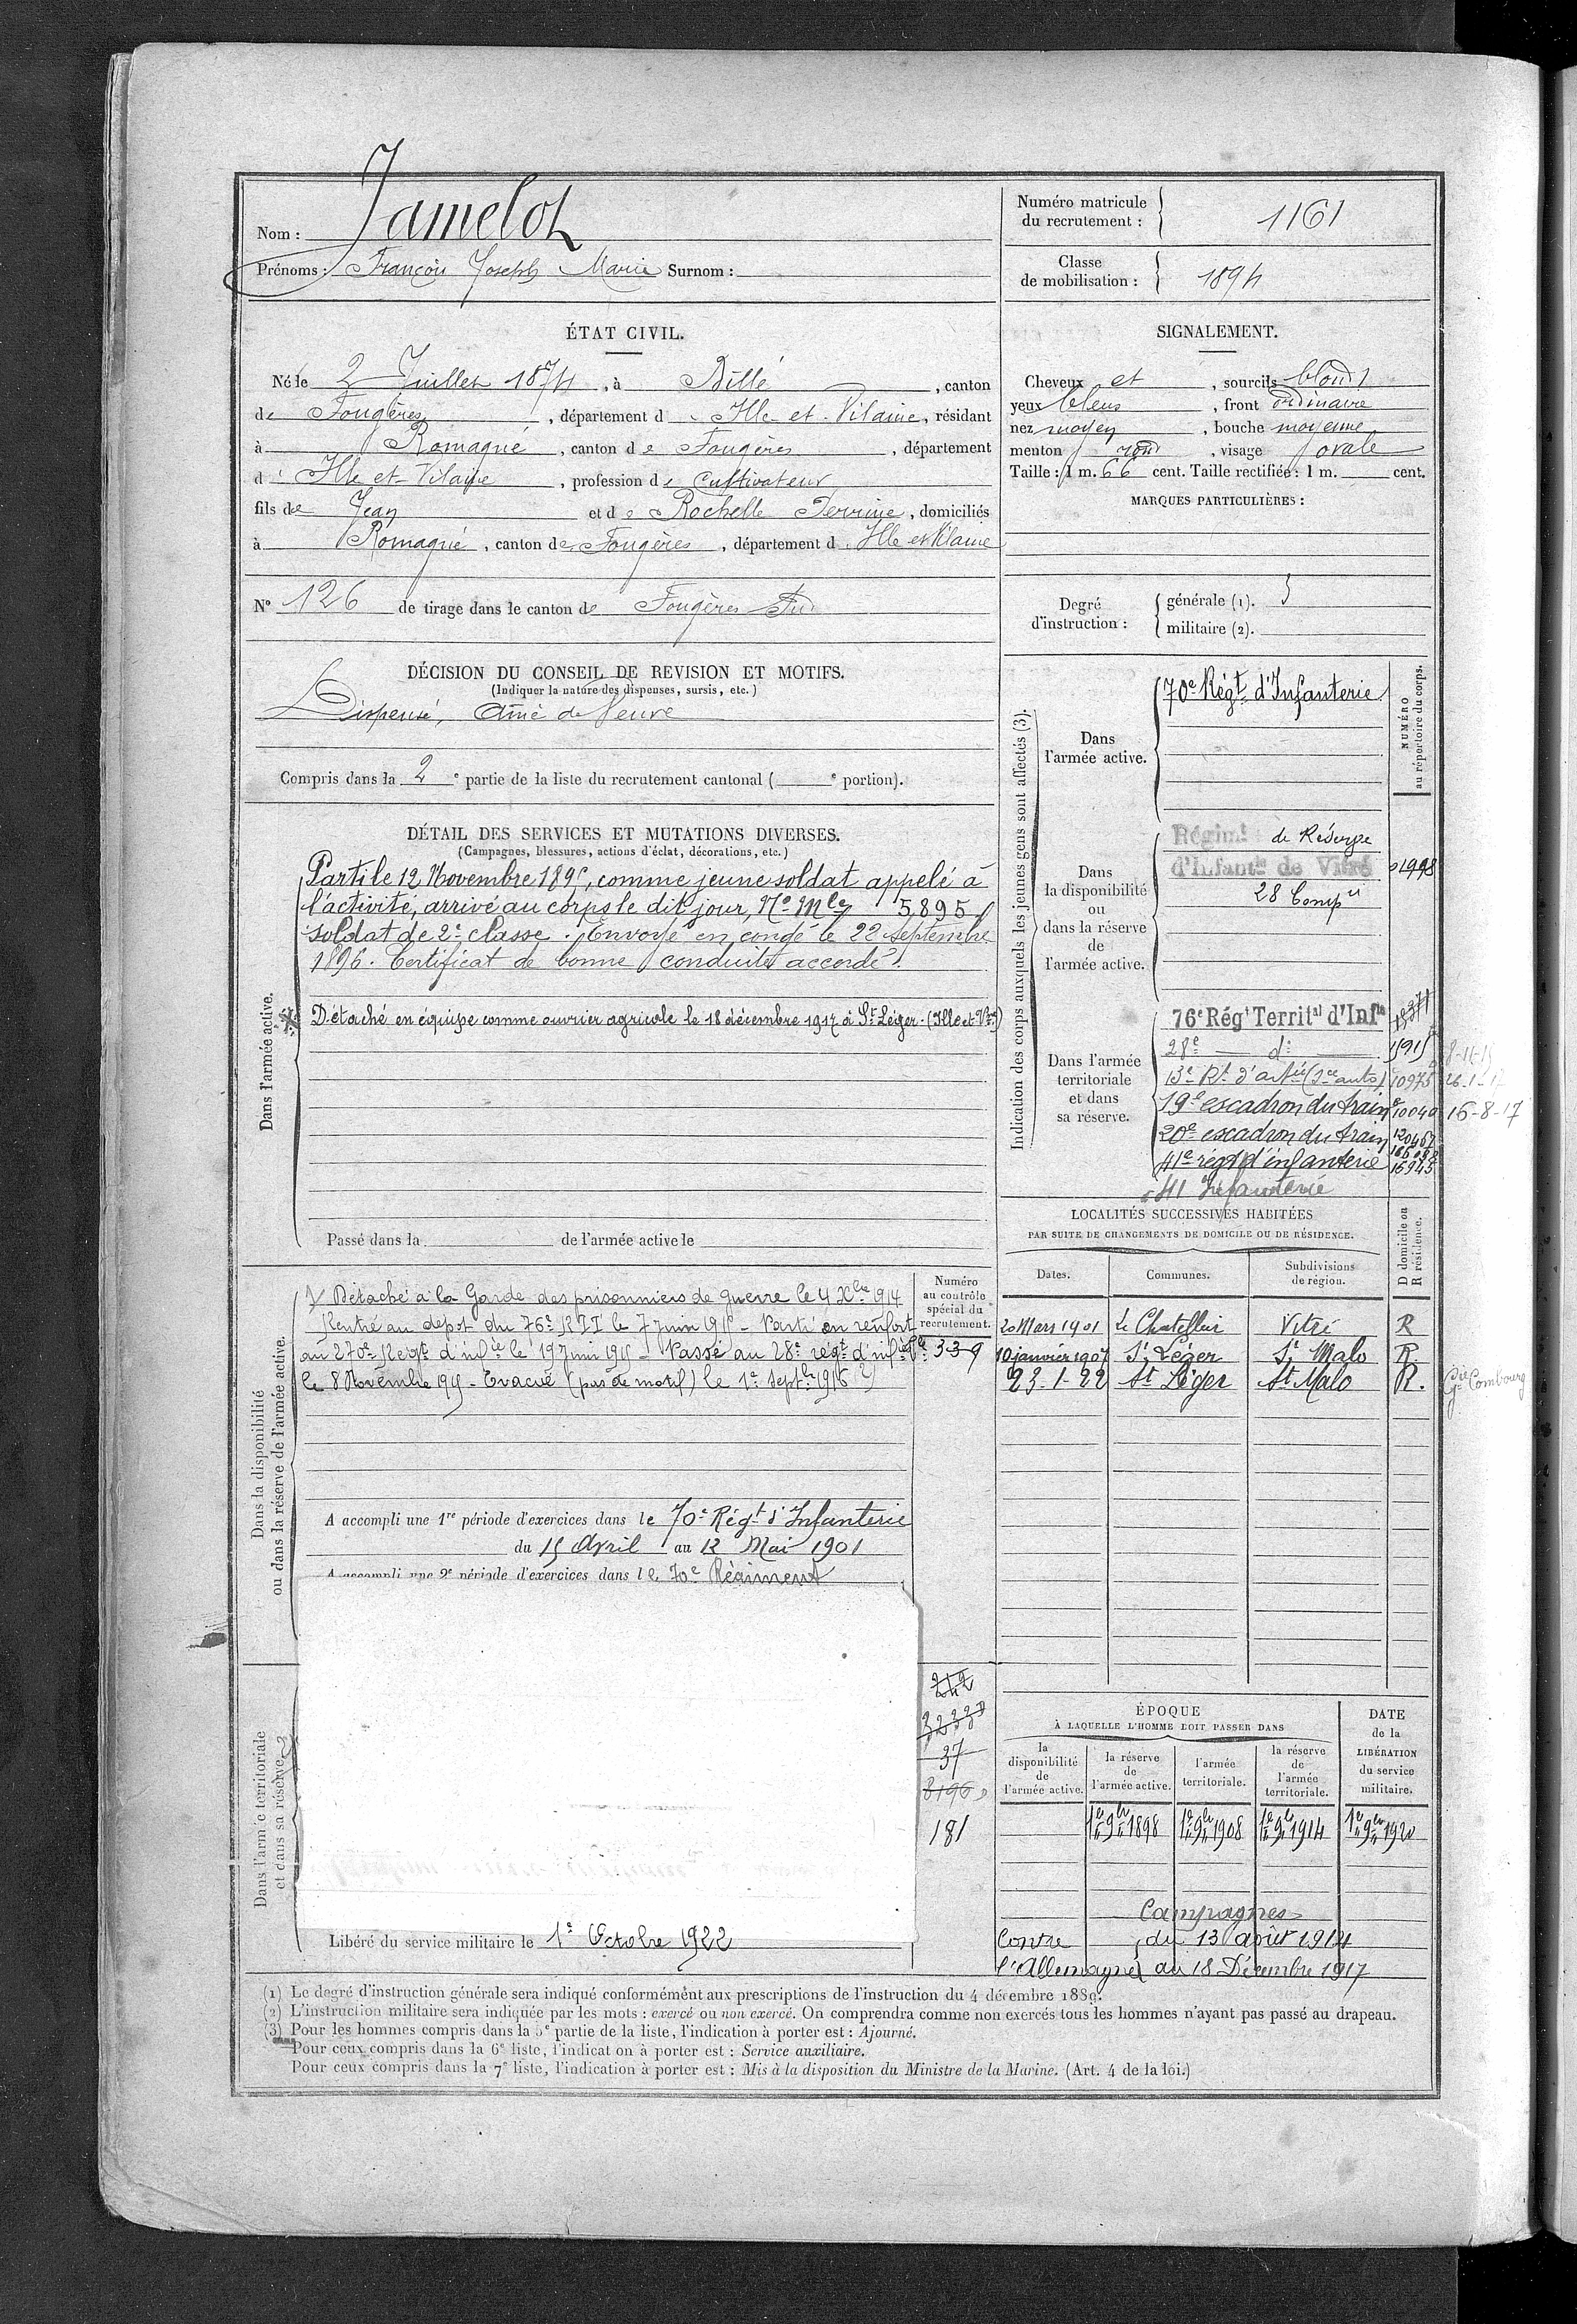 Nom : Jamelot
Prénoms : François Joseph Marie Surnom :
Numéro matricule du recrutement : 1161
Classe de mobilisation : 1894
ÉTAT CIVIL.
Né le 2 Juillet 1874, à Billé, canton
de Fougères, département d Ille-et-Vilaine, résidant
à Romagné, canton de Fougères, département
d' Ille et Vilaine, profession de Cultivateur
fils de Jean et de Rochelle Perrine, domiciliés
à Romagné, canton de Fougères, département d Ille et Vilaine
N° 126 de tirage dans le canton de Fougères Sud
SIGNALEMENT.
Cheveux et, sourcils blonds
yeux bleus, front ordinaire
nez moyen, bouche moyenne
menton rond, visage ovale
Taille : 1 m. 66 cent. Taille rectifiée : 1 m. cent.
MARQUES PARTICULIÈRES :
Degré d'instruction : générale (1). 3
militaire (2).
DÉCISION DU CONSEIL DE REVISION ET MOTIFS.
(Indiquer la nature des dispenses, sursis, etc.)
Dispensé, Ainé de Veuve
Compris dans la 2e partie de la liste du recrutement cantonal ( e portion).
DÉTAIL DES SERVICES ET MUTATIONS DIVERSES.
(Campagnes, blessures, actions d'éclat, décorations, etc.)
Dans l'armée active.
Parti le 12 Novembre 1895, comme jeune soldat appelé à
l'activité, arrivé au corps le dit jour, No Mle 5895
Soldat de 2e classe. Envoyé en congé le 22 septembre
1896. Certificat de bonne conduite accordé.
Détaché en équipe comme ouvrier agricole le 18 décembre 1917 à St Léger. (Ille et Vne)
Passé dans la de l'armée active le
Indication des corps auxquels les jeunes gens sont affectés (3).
NUMÉRO au répertoire du corps.
Dans l'armée active.
70e Régt d'Infanterie
Dans la disponibilité ou dans la réserve de l'armée active.
Régimt de Réserve
d'Infantie de Vitré 01998
28 Compie
Dans l'armée territoriale et dans sa réserve.
76e Régt Territal d'Infie
28e d° 1915 8-11-15
13e Rt d'artie (sce auto) 10975 26-1-17
19e escadron du train 10040 16-8-17
20e escadron du train
41e régt d'infanterie 16945
41 Infanterie
LOCALITÉS SUCCESSIVES HABITÉES
PAR SUITE DE CHANGEMENTS DE DOMICILE OU DE RÉSIDENCE.
D domicile ou R résidence.
Dates. Communes. Subdivisions de région.
20 Mars 1901 Le Chatellier Vitré R
10 janvier 1907 St Léger St Malo R.
23.1-22 St Léger St Malo R. Gie Combourg
Dans la disponibilité ou dans la réserve de l'armée active.
Numéro au contrôle spécial du recrutement.
Détaché à la Garde des prisonniers de guerre le 4 Xbre 1914
Rentré au dépôt du 76e RIT le 7 juin 1915 - Parti en renfort
au 270e Regt d'infie le 19 juin 1915 - Passé au 28e régt d'infie Tle
le 8 Novembre 1915 - Evacué (pas de motif) le 1er Septbre 1916
339
A accompli une 1re période d'exercices dans le 70e Régt d'Infanterie
du 15 Avril au 12 Mai 1901
A accompli une 2e période d'exercices dans l e 70e Régiment
Dans l'armée territoriale et dans sa réserve.
242
3233
37
8196
181
Libéré du service militaire le 1er Octobre 1922
ÉPOQUE
À LAQUELLE L'HOMME DOIT PASSER DANS
la disponibilité de l'armée active.
la réserve de l'armée active.
l'armée territoriale.
la réserve de l'armée territoriale.
DATE de la LIBÉRATION du service militaire.
1er 9bre 1898 1er 9bre 1908 1er 9bre 1914 1er 9bre 1920
Campagnes
Contre du 13 août 1914
l'Allemagne au 18 Décembre 1917
(1) Le degré d'instruction générale sera indiqué conformément aux prescriptions de l'instruction du 4 décembre 1889.
(2) L'instruction militaire sera indiquée par les mots : exercé ou non exercé. On comprendra comme non exercés tous les hommes n'ayant pas passé au drapeau.
(3) Pour les hommes compris dans la 5e partie de la liste, l'indication à porter est : Ajourné.
Pour ceux compris dans la 6e liste, l'indication à porter est : Service auxiliaire.
Pour ceux compris dans la 7e liste, l'indication à porter est : Mis à la disposition du Ministre de la Marine. (Art. 4 de la loi.)